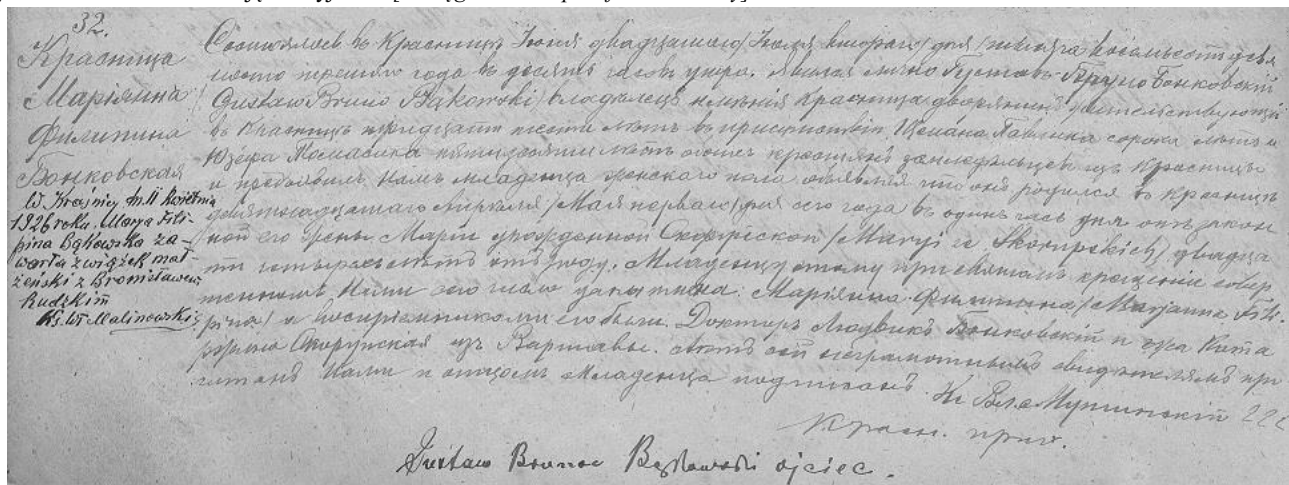 32.
Красница
Маріянна
Филипина
Бонковская
W Kraśnicy dn. 11 kwietnia
1926 roku Marya Fili-
pina Bąkowska za-
warła związek mał-
żeński z Bronisławem
Rudzkim
Ks. Wł Malinowski
Состоялось въ Красницѣ Іюня двадцатаго / Іюля втораго / дня / тысяча восемьсотъ девя
носто третьяго года въ десять часовъ утра. Явился лично Густавъ Бруно Бонковскій
/Gustaw Bruno Bąkowski/ владѣлецъ имѣнія Красница дворянинъ жительствующій
въ Красницѣ тридцати шести лѣтъ въ присутствіи Щепана Павлика сорока лѣтъ и
Юзефа пятидесяти лѣтъ крестьянъ земледѣльцевъ изъ Красницы
и предъявилъ Намъ младенца женскаго пола объявляя что онъ родился въ Красницѣ
девятнадцатаго Апрѣля / Мая перваго / дня сего года въ одинъ часъ дня отъ закон
ной его жены Маріи урожденной Скорупской / Maryi ze Skorupskich / двадца
ти четырехъ лѣтъ отъ роду. Младенцу этому при святомъ крещеніи совер
шенномъ Нами сего числа даны имена Маріянна Филипина / Marjanna Fili-
pina / а воспріемниками его были Докторъ Людвикъ Бонковскій и
Скорупская изъ Варшавы. Актъ сей неграмотнымъ свидѣтелямъ про
читанъ Нами и отцомъ младенца подписанъ.
Красн. прих.
Gustaw Bruno Bąkowski ojciec.